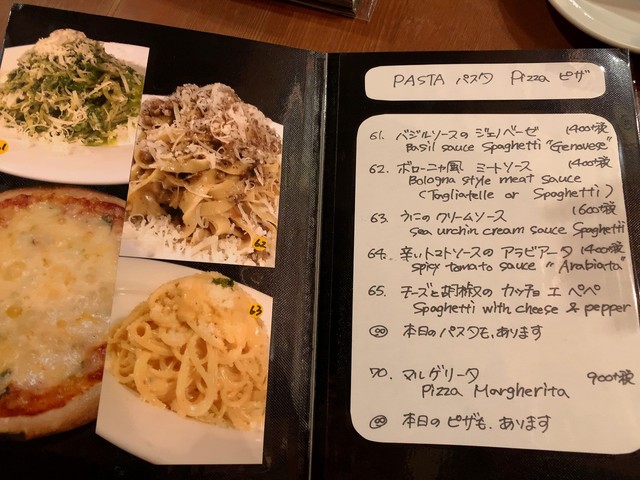 PASTA パスタ Pizza ピザ
61. バジルソースの ジェノベーゼ 1400+税
Basil sauce Spaghetti "Genovese"
62. ボローニャ風 ミートソース 1400+税
Bologna style meat sauce
(Tagliatelle or Spaghetti)
63. うにの クリームソース 1600+税
sea urchin cream sauce Spaghetti
64. 辛いトマトソースの アラビアータ 1400+税
spicy tomato sauce "Arabiata"
65. チーズと胡椒の カッチョ エ ペペ
Spaghetti with cheese & pepper
本日のパスタも、あります
70. マルゲリータ 900+税
Pizza Margherita
本日の ピザも、あります
61
62
63